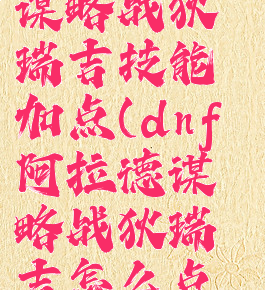 谋略战狄
瑞吉技能
加点(dnf
阿拉德谋
略战狄瑞
吉怎么点